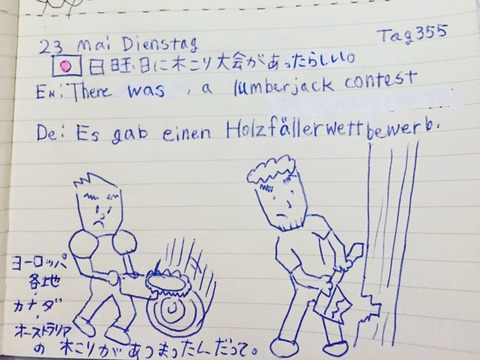 23 Mai Dienstag Tag355
日曜日に木こり大会があったらしい。
EN: There was , a lumberjack contest
De: Es gab einen Holzfällerwettbewerb.
ヨーロッパ
各地
・
カナダ
・
オーストラリア
の木こりがあつまったんだって。